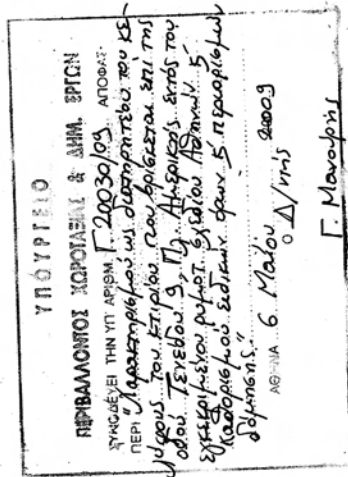 ΥΠΟΥΡΓΕΙΟ
ΠΕΡΙΒΑΛΛΟΝΤΟΣ ΧΩΡΟΤΑΞΙΑΣ & ΔΗΜ. ΕΡΓΩΝ
ΣΥΝΟΔΕΥΕΙ ΤΗΝ ΥΠ' ΑΡΙΘΜ. Γ. 20030/09 ΑΠΟΦΑΣ.
ΠΕΡΙ "Χαρακτηρισμού ως διατηρητέου του κε-
λύφους του κτιρίου που βρίσκεται επί της
οδού Τενέδου 9, Πλ. Αμερικής, εκτός του
εγκεκριμένου ρυμοτ. σχεδίου Αθηνών &
καθορισμού ειδικών όρων & περιορισμών
δόμησης."
ΑΘΗΝΑ 6 Μαΐου 2009
ο Δ/ντής